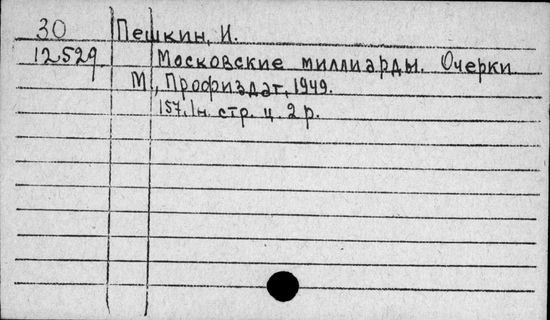 30 Пешкин, И.
12529 Московские миллиарды. Очерки
М., Профиздат, 1949.
157, 1н. стр. ц. 2 р.